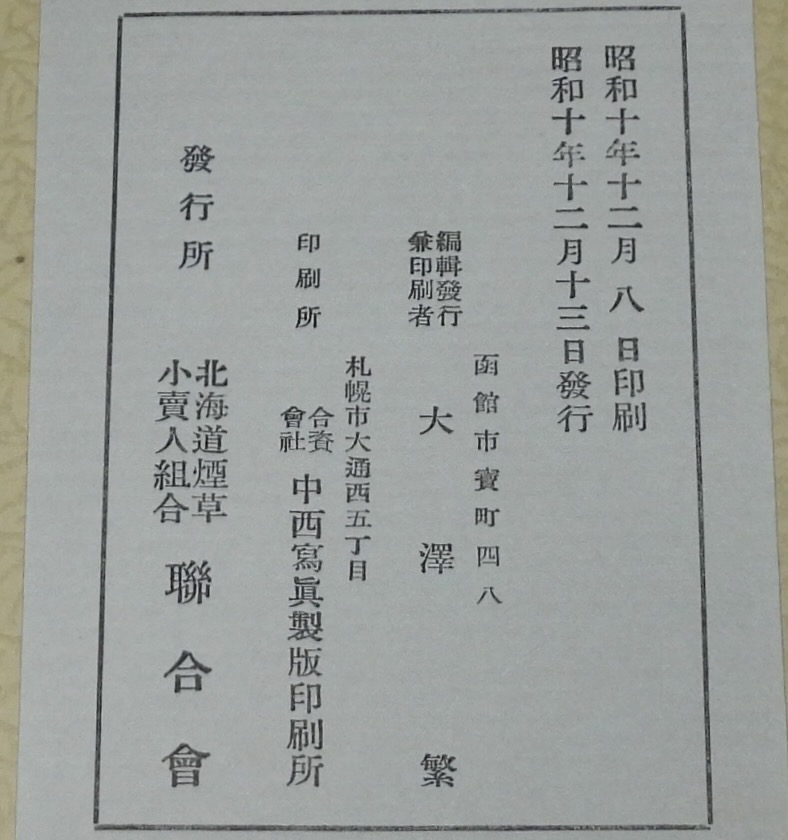 昭和十年十二月八日印刷
昭和十年十二月十三日發行
函館市寳町四八
編輯發行
兼印刷者
大澤繁
札幌市大通西五丁目
合資
會社
中西寫眞製版印刷所
印刷所
北海道煙草
小賣人組合
聯合會
發行所